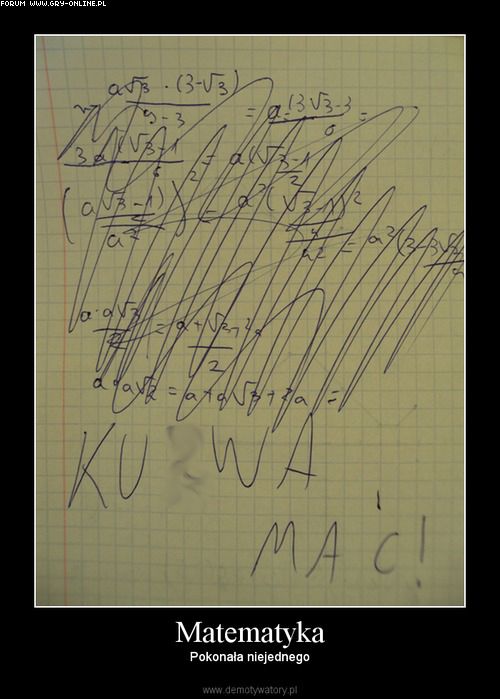 FORUM WWW.GRY-ONLINE.PL
a√3 · (3-√3)
9 - 3
= a (3√3-3
6
=
3a (√3-1
6
= a(√3-1
2
(a(√3-1)
a2
)2 = a2(√3-1)2
a2
= a2(3-3√3
a·a√3
2
= a+√3
2
a·a√2 = a+a√3+2a =
KU WA
MAĆ!
Matematyka
Pokonała niejednego
www.demotywatory.pl